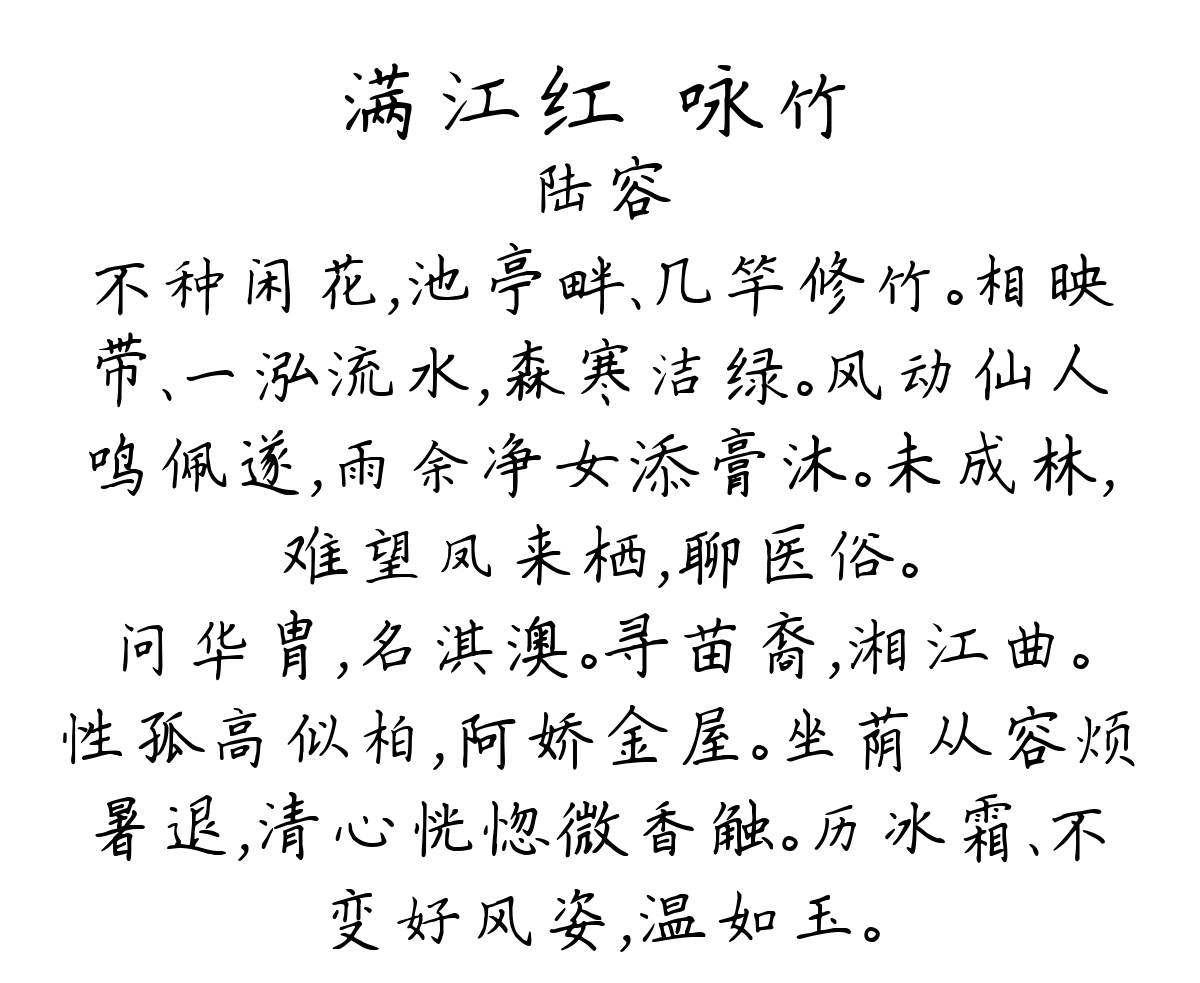 满江红 咏竹
陆容
不种闲花,池亭畔、几竿修竹。相映
带、一泓流水,森寒洁绿。风动仙人
鸣佩遂,雨余净女添膏沐。未成林,
难望凤来栖,聊医俗。
问华胄,名淇澳。寻苗裔,湘江曲。
性孤高似柏,阿娇金屋。坐荫从容烦
暑退,清心恍惚微香触。历冰霜、不
变好风姿,温如玉。